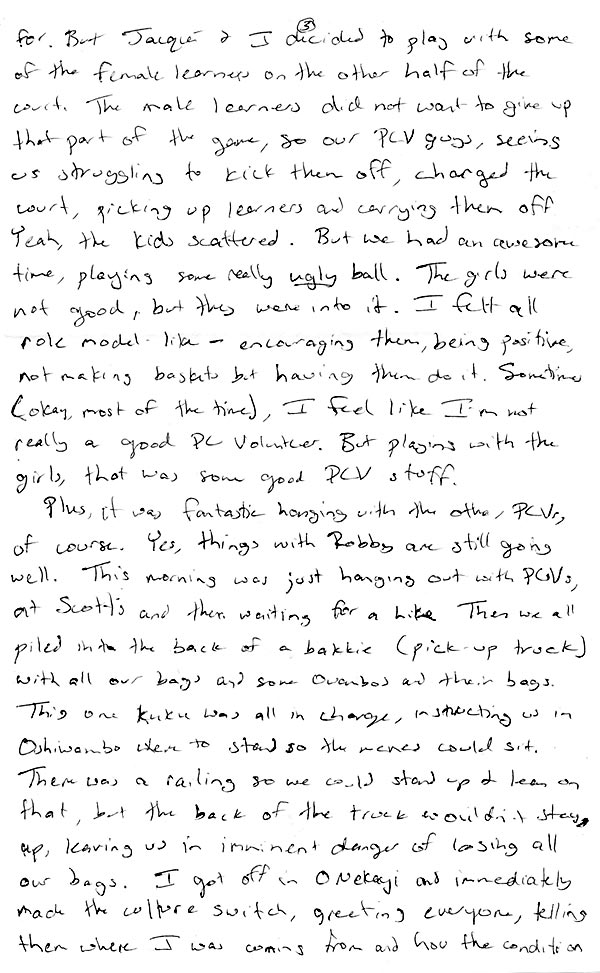 ③
for. But Jacquè & I decided to play with some
of the female learners on the other half of the
court. The male learners did not want to give up
that part of the game, so our PCV guys, seeing
us struggling to kick them off, charged the
court, picking up learners and carrying them off
Yeah, the kids scattered. But we had an awesome
time, playing some really ugly ball. The girls were
not good, but they were into it. I felt all
role model-like - encouraging them, being positive,
not making baskets but having them do it. Sometimes
(okay, most of the time), I feel like I'm not
really a good PC Volunteer. But playing with the
girls, that was some good PCV stuff.
Plus, it was fantastic hanging with the other PCVs,
of course. Yes, things with Robby are still going
well. This morning was just hanging out with PCVs,
at Scott's and then waiting for a hike Then we all
piled into the back of a bakkie (pick-up truck)
with all our bags and some Ovambos and their bags.
This one kuku was all in charge, instructing us in
Oshiwambo where to stand so the memes could sit.
There was a railing so we could stand up & lean on
that, but the back of the truck wouldn't stay
up, leaving us in imminent danger of losing all
our bags. I got off in ONekayi and immediately
made the culture switch, greeting everyone, telling
them where I was coming from and how the condition